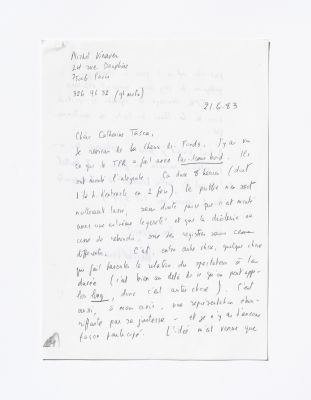 Michel Vinaver
24 rue Dauphine
75006 Paris
326 96 32 (
21.6.83
Chère Catherine Tasca,
Je reviens de La Chaux-de-Fonds. J'y ai vu
ce que le TPR a fait avec Par-dessus bord. Ils
ont monté l'intégrale. Ca dure 8 heures (dont
1 h 1/2 d'entracte en 2 fois). Le public n'en sort
nullement lassé, sans doute parce que c'est monté
avec une extrême légèreté et que la théâtralité
cesse de rebondir, sur des registres sans cesse
différents. C'est, entre autre chose, quelque chose
qui fait basculer la relation du spectateur à la
durée (c'est bien au delà de ce qu'on peut appe-
ler long, donc c'est autre chose). C'est
aussi, à mon avis, une représentation
par sa justesse - et je n'y ai d'aucune
façon participé. L'idée m'est venue que